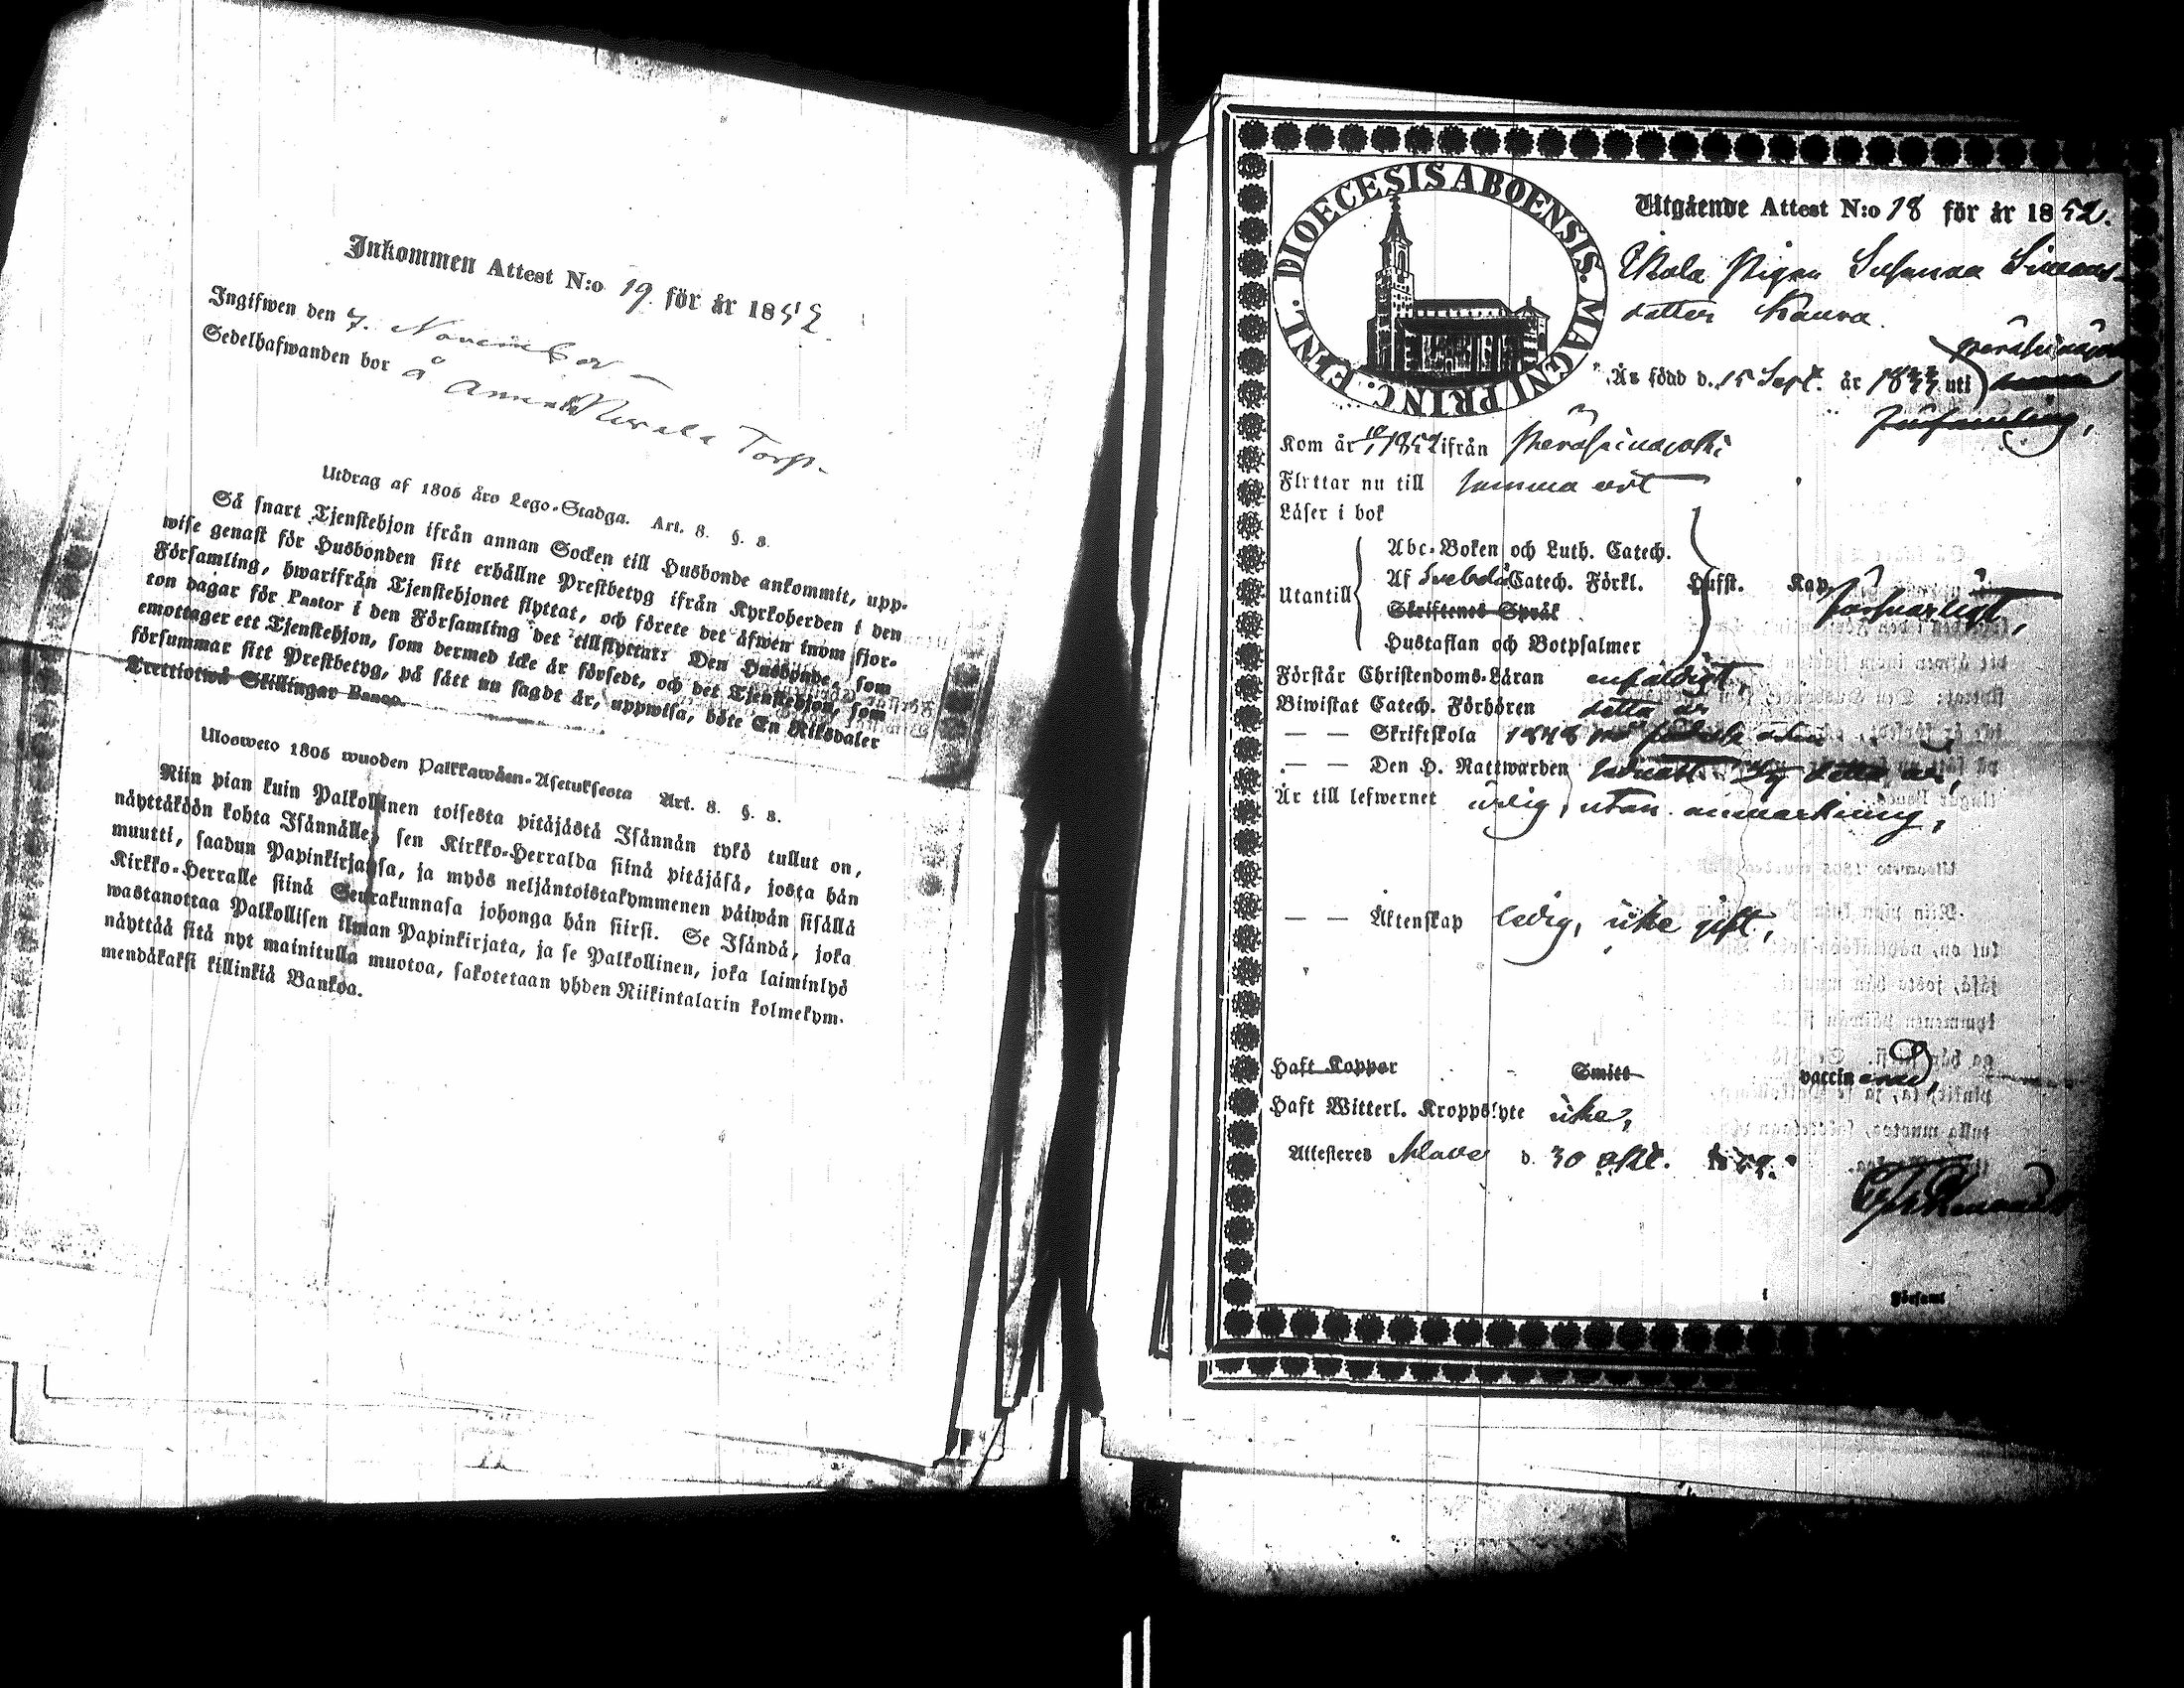 Inkommen Attest N:o 19. för år 1852.
Ingifwen den 7. November
Sedelhafwanden bor å Torp
Utdrag af 1805 års Lego-Stadga. Art. 8. §. 8.
Så snart Tjenstehjon ifrån annan Socken till Husbonde ankommit, upp-
wise genast för Husbonden sitt erhållne Prestbetyg ifrån Kyrkoherden i den
Församling, hwarifrån Tjenstehjonet flyttat, och förete det äfwen inom fjor-
ton dagar för Pastor i den Församling det tillflyttat: Den Husbonde, som
emottager ett Tjenstehjon, som dermed icke är försedt, och det Tjenstehjon, som
försummar sitt Prestbetyg, på sätt nu sagdt är, uppwisa, böte En Riksdaler
Trettiotwå Skillingar Banco.
Ulosweto 1805 wuoden Palkkawäen-Asetuksesta Art. 8. §. 8.
Niin pian kuin Palkollinen toisesta pitäjästä Isännän tykö tullut on,
näyttäköön kohta Isännälle, sen Kirkko-Herralda siinä pitäjäsä, josta hän
muutti, saadun Papinkirjansa, ja myös neljäntoistakymmenen päiwän sisällä
Kirkko-Herralle siinä Seurakunnasa johonga hän siirsi. Se Isändä, joka
wastanottaa Palkollisen ilman Papinkirjata, ja se Palkollinen, joka laiminlyö
näyttää sitä nyt mainitulla muotoa, sakotetaan yhden Riikintalarin kolmekym-
mendäkaksi killinkiä Bankoa.
DIOECESIS ABOENSIS. MAGNI PRINC. FINL.
Utgående Attest N:o 18 för år 1852.
Pigan Susanna Simons-
dotter Kaura.
Peräseinäjoki
Är född d. 15 Sept. år 1833 uti
församling,
Kom år 1852 ifrån Peräseinäjoki
Flyttar nu till samma ort
Läser i bok
Abc-Boken och Luth. Catech.
Utantill Af Svebelii Catech. Förkl. Hufst. Kap. försvarligt,
Skriftenes Språk
Hustaflan och Botpsalmer
Förstår Christendoms-Läran enfaldigt,
Biwistat Catech. Förhören detta år
— — Skriftskola 1848
— — Den H. Nattwarden detta år,
Är till lefwernet ärlig, utan anmärkning,
— — Äktenskap ledig, icke gift,
Haft Koppor Smitt vaccinerad,
Haft Witterl. Kroppslyte icke,
Attesteras d. 30 Okt. 1852.
Församl